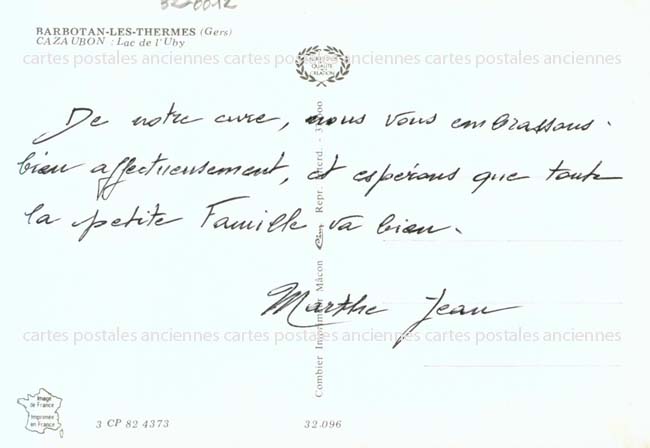 32-0012
BARBOTAN-LES-THERMES (Gers)
CAZAUBON : Lac de l'Uby
cartes postales anciennes cartes postales anciennes cartes postales anciennes
De notre cure, nous vous embrassons.
bien affectueusement, et espérons que toute
la petite Famille va bien.
Marthe Jean
Combier Imprimeur Mâcon Cim Repr. interd.
cartes postales anciennes cartes postales anciennes cartes postales anciennes
Image
de France
Imprimée
en France
3 CP 82 4373
32.096